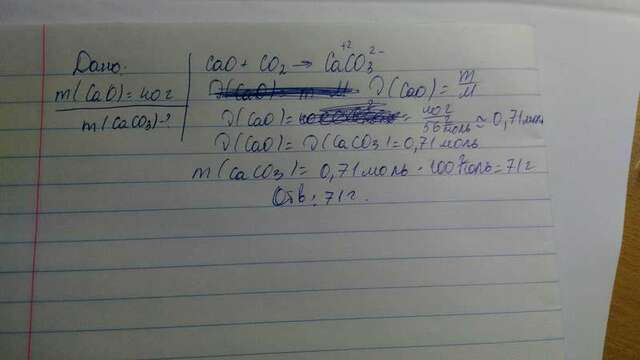 Дано:
m(CaO)=40г
m(CaCO₃)-?
CaO + CO₂ → CaCO₃
+2 2-
ν(CaO)= m/M
ν(CaO)= = 40г/56г/моль ≈ 0,71моль
ν(CaO)= ν(CaCO₃)=0,71моль
m(CaCO₃)= 0,71моль · 100г/моль=71г
Отв: 71г.